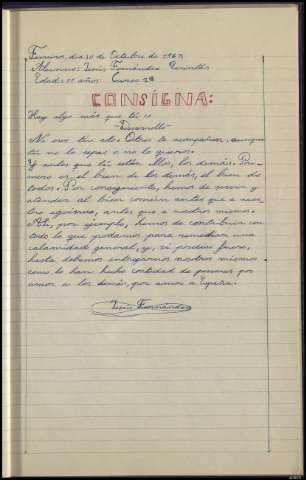 Ferreiro, dia 10 de Octubre de 1967
Alumno: Jesús Fernández Quintás
Edad: 11 años: Curso 2º
CONSIGNA:
Hay algo más que tú
Desarrollo
No eres tú solo. Otros te acompañan, aunque
tú no lo sepas o no lo quieras.
Y antes que tú están ellos, los demás. Pri-
mero es el bien de los demás, el bien de
todos. Por consiguiente, hemos de servir y
atender al bien común antes que a nues-
tro egoísmo, antes que a nosotros mismos.
Así, por ejemplo, hemos de contribuir con
todo lo que podamos para remediar una
calamidad general, y, si preciso fuera,
hasta debemos entregarnos nosotros mismos
como lo han hecho cantidad de personas por
amor a los demás, por amor a España.
Jesús Fernández